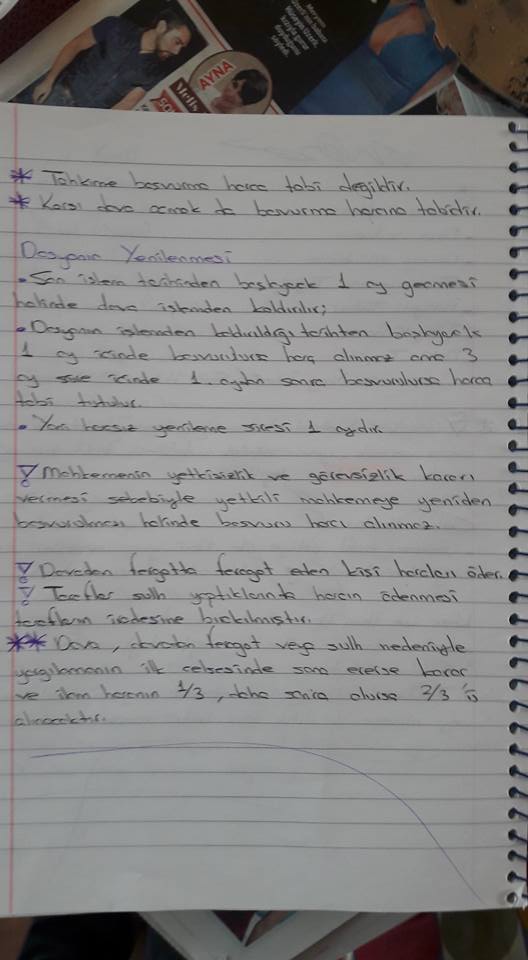 AYNA
Melis
* Tahkime başvurma harca tabi değildir.
* Karşı dava açmak da başvurma harcına tabidir.
Dosyanın Yenilenmesi
• Son işlem tarihinden başlayarak 1 ay geçmesi
halinde dava işlemden kaldırılır;
• Dosyanın işlemden kaldırıldığı tarihten başlayarak
1 ay içinde başvurulursa harç alınmaz ama 3
ay süre içinde 1. aydan sonra başvurulursa harca
tabi tutulur.
• Yani harcsız yenileme süresi 1 aydır.
! Mahkemenin yetkisizlik ve görevsizlik kararı
vermesi sebebiyle yetkili mahkemeye yeniden
başvurulması halinde başvuru harcı alınmaz.
! Davadan feragatta feragat eden kişi harcları öder.
! Taraflar sulh yaptıklarında harcın ödenmesi
tarafların iradesine bırakılmıştır.
** Dava, davadan feragat veya sulh nedeniyle
yargılamanın ilk celsesinde sona ererse karar
ve ilam harcının 1/3, daha sonra olursa 2/3 'ü
alınacaktır.